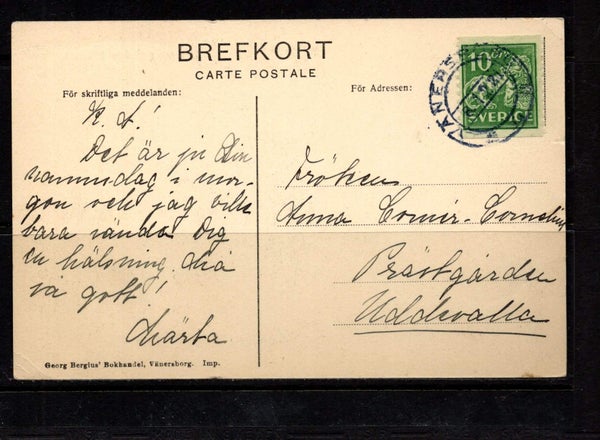 BREFKORT
CARTE POSTALE
För skriftliga meddelanden:
För Adressen:
10
SVERIGE
VÄNERSBORG
K. A!
Det är ju Din
namnsdag i mor-
gon och jag vill
bara sända Dig
en hälsning. Må
så gott!
Märta
Fröken
Anna Cornelius
Prästgården
Uddevalla
Georg Bergius' Bokhandel, Vänersborg. Imp.